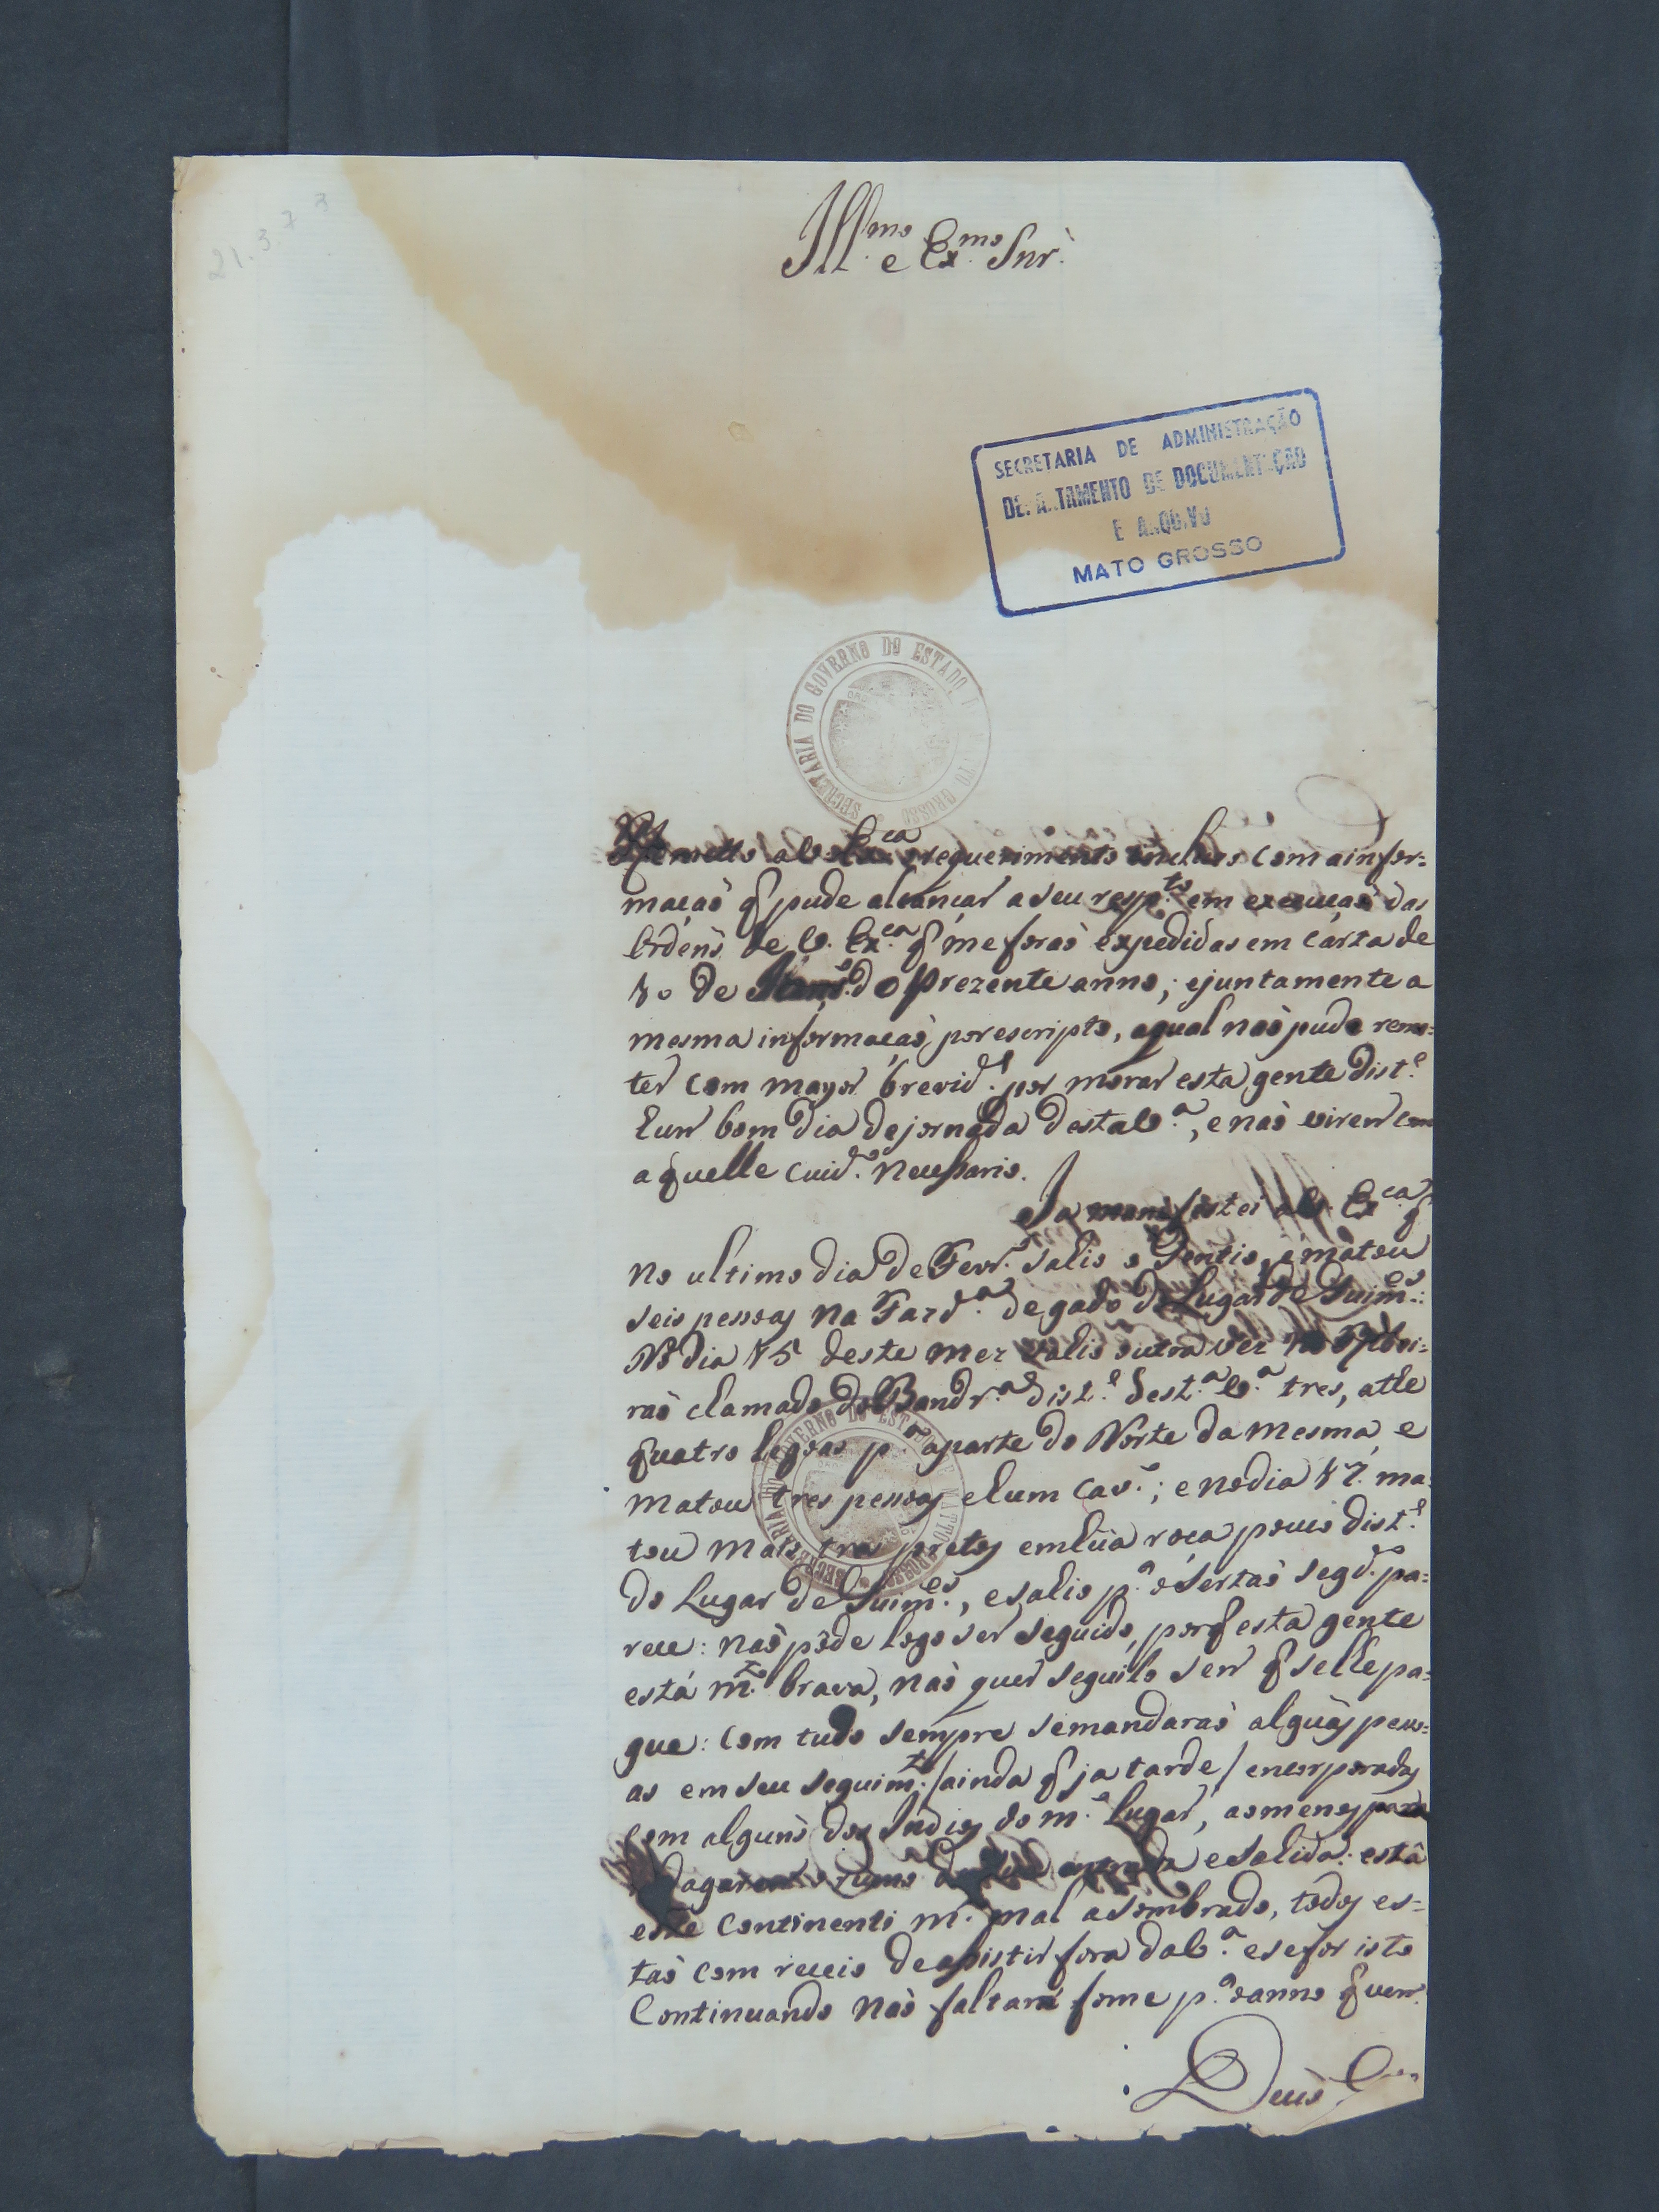 21.373
Ill.mo e Ex.mo Snr.
SECRETARIA DE ADMINISTRAÇÃO
DEPARTAMENTO DE DOCUMENTAÇÃO
E ARQUIVO
MATO GROSSO
SECRETARIA DO GOVERNO DO ESTADO DE MATTO GROSSO
Remetto a V. Ex.ca o requerimento incluzo com a infor=
mação q̃ pude alcançar a seu resp.to em execução das
Ordens de V. Ex.ca q̃ me foraõ expedidas em carta de
10 de do prezente anno; e juntamente a
mesma informaçaõ por escripto, a qual naõ pude reme=
ter com mayor brevid.e por morar esta gente dist.e
hum bom dia de jornada desta V.a, e naõ virem com
aquelle cuid.o necessario.
Ja manifestei a V. Ex.ca q̃
no ultimo dia de Fevr.o sahio o Gentio, e matou
seis pessoas na Fazd.a de gado do Lugar de Guim.es:
No dia 15 deste mez sahio outra vez no Ribei=
raõ chamado do Bandr.a dist.e dest.a V.a tres, athe
quatro legoas p.a a parte do Norte da mesma, e
matou tres pessoas e hum cav.o; e no dia 17 ma=
tou mais tres pretos em hũa roça pouco dist.e
do Lugar de Guim.es, e sahio p.a o Sertaõ segd.o pa=
rece: naõ pôde logo ser seguido, porq̃ esta gente
está m.to brava, naõ quer seguilo sem q̃ se lhe pa=
gue: com tudo sempre se mandaraõ alguãs pesso=
as em seu seguim.to /ainda q̃ ja tarde/ encorporadas
com alguns dos Indios do m.o lugar, ao menos para
indagarem o rumo da sua entrada e sahida: está
este continenti m.to mal asombrado, todos es=
taõ com receio de asistir fora da V.a e se for isto
Continuando naõ faltará fome p.a o anno q̃ vem.
SECRETARIA DO GOVERNO DO ESTADO DE MATTO GROSSO
Deus